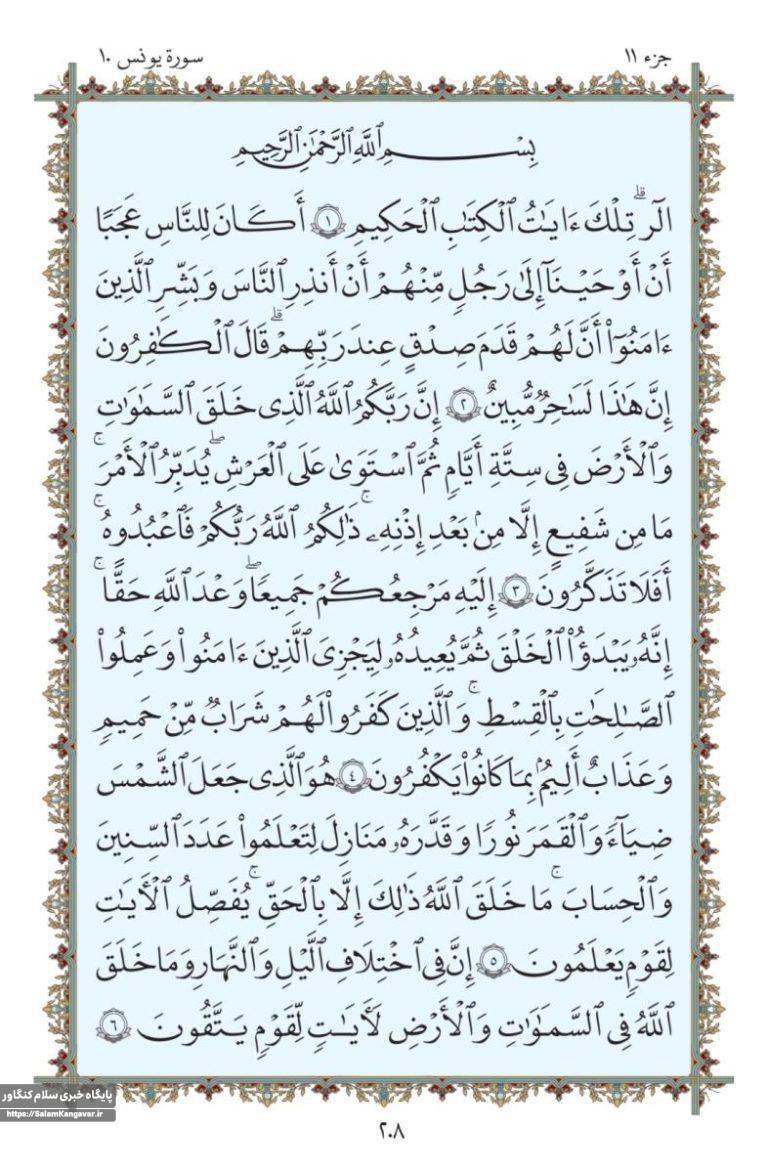 جزء ١١
سورة يونس ١٠
بِسْمِ ٱللَّهِ ٱلرَّحْمَٰنِ ٱلرَّحِيمِ
الٓرۚ تِلْكَ ءَايَٰتُ ٱلْكِتَٰبِ ٱلْحَكِيمِ ١ أَكَانَ لِلنَّاسِ عَجَبًا
أَنْ أَوْحَيْنَآ إِلَىٰ رَجُلٍ مِّنْهُمْ أَنْ أَنذِرِ ٱلنَّاسَ وَبَشِّرِ ٱلَّذِينَ
ءَامَنُوٓا۟ أَنَّ لَهُمْ قَدَمَ صِدْقٍ عِندَ رَبِّهِمْۗ قَالَ ٱلْكَٰفِرُونَ
إِنَّ هَٰذَا لَسَٰحِرٌ مُّبِينٌ ٢ إِنَّ رَبَّكُمُ ٱللَّهُ ٱلَّذِى خَلَقَ ٱلسَّمَٰوَٰتِ
وَٱلْأَرْضَ فِى سِتَّةِ أَيَّامٍ ثُمَّ ٱسْتَوَىٰ عَلَى ٱلْعَرْشِۖ يُدَبِّرُ ٱلْأَمْرَۚ
مَا مِن شَفِيعٍ إِلَّا مِنۢ بَعْدِ إِذْنِهِۦۚ ذَٰلِكُمُ ٱللَّهُ رَبُّكُمْ فَٱعْبُدُوهُۚ
أَفَلَا تَذَكَّرُونَ ٣ إِلَيْهِ مَرْجِعُكُمْ جَمِيعًاۖ وَعْدَ ٱللَّهِ حَقًّاۚ
إِنَّهُۥ يَبْدَؤُا۟ ٱلْخَلْقَ ثُمَّ يُعِيدُهُۥ لِيَجْزِىَ ٱلَّذِينَ ءَامَنُوا۟ وَعَمِلُوا۟
ٱلصَّٰلِحَٰتِ بِٱلْقِسْطِۚ وَٱلَّذِينَ كَفَرُوا۟ لَهُمْ شَرَابٌ مِّنْ حَمِيمٍ
وَعَذَابٌ أَلِيمٌۢ بِمَا كَانُوا۟ يَكْفُرُونَ ٤ هُوَ ٱلَّذِى جَعَلَ ٱلشَّمْسَ
ضِيَآءً وَٱلْقَمَرَ نُورًا وَقَدَّرَهُۥ مَنَازِلَ لِتَعْلَمُوا۟ عَدَدَ ٱلسِّنِينَ
وَٱلْحِسَابَۚ مَا خَلَقَ ٱللَّهُ ذَٰلِكَ إِلَّا بِٱلْحَقِّۚ يُفَصِّلُ ٱلْأَيَٰتِ
لِقَوْمٍ يَعْلَمُونَ ٥ إِنَّ فِى ٱخْتِلَٰفِ ٱلَّيْلِ وَٱلنَّهَارِ وَمَا خَلَقَ
ٱللَّهُ فِى ٱلسَّمَٰوَٰتِ وَٱلْأَرْضِ لَأَيَٰتٍ لِّقَوْمٍ يَتَّقُونَ ٦
پایگاه خبری سلام کنگاور
https://SalamKangavar.ir
٢٠٨